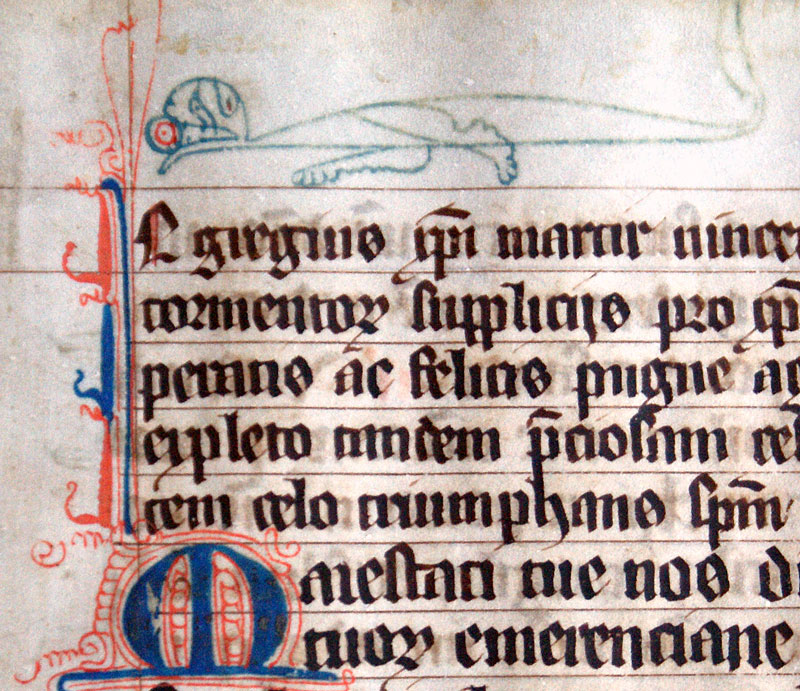 Egregius xp̄i martir uincen
tormentoꝝ supplicijs pro xp̄
peratis ac felicis pugne ag
expleto tandem p̄ciosam
cem celo triumphans sp̄m
Maiestati tue nos d
tuoꝝ emerenciane